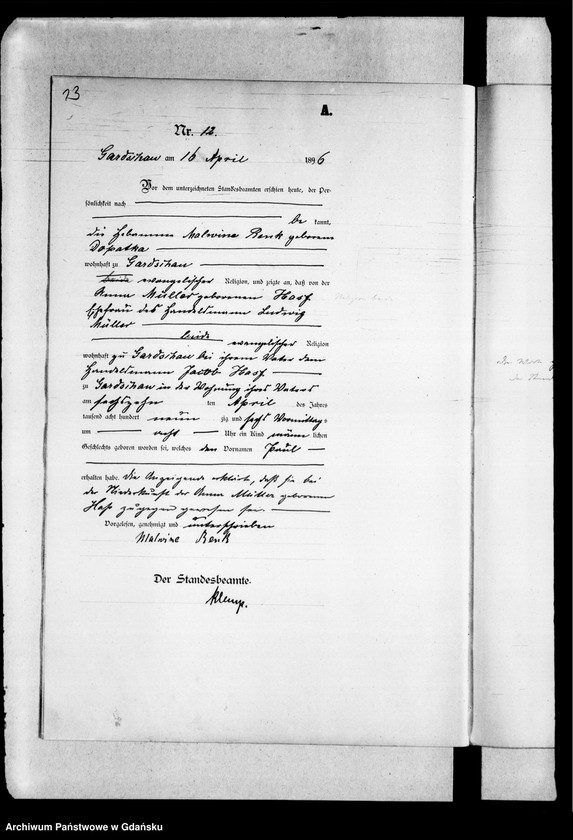 23
A.
Nr. 12.
Gardschau am 16 April 1896
Vor dem unterzeichneten Standesbeamten erschien heute, der Per-
sönlichkeit nach
be kannt,
die Hebamme Malwina Renk geborene
Dopatka
wohnhaft zu Gardschau
beide evangelischer Religion, und zeigte an, daß von der
Anna Müller geborenen Hasf
Ehefrau des Handelsmann Ludwig
Müller
beide evangelischer Religion
wohnhaft zu Gardschau bei ihrem Vater dem
Handelsmann Jacob Hasf
zu Gardschau in der Wohnung ihres Vaters
am sechszehn ten April des Jahres
tausend acht hundert neun zig und sechs Vormittag
um acht Uhr ein Kind männ lichen
Geschlechts geboren worden sei, welches den Vornamen Paul
erhalten habe. Die Anzeigende erklärt, daß sie bei
der Niederkunft der Anna Müller geborenen
Hasf zugegen gewesen sei.
Vorgelesen, genehmigt und unterschrieben
Malwine Renk
Der Standesbeamte.
Klemp.
Archiwum Państwowe w Gdańsku